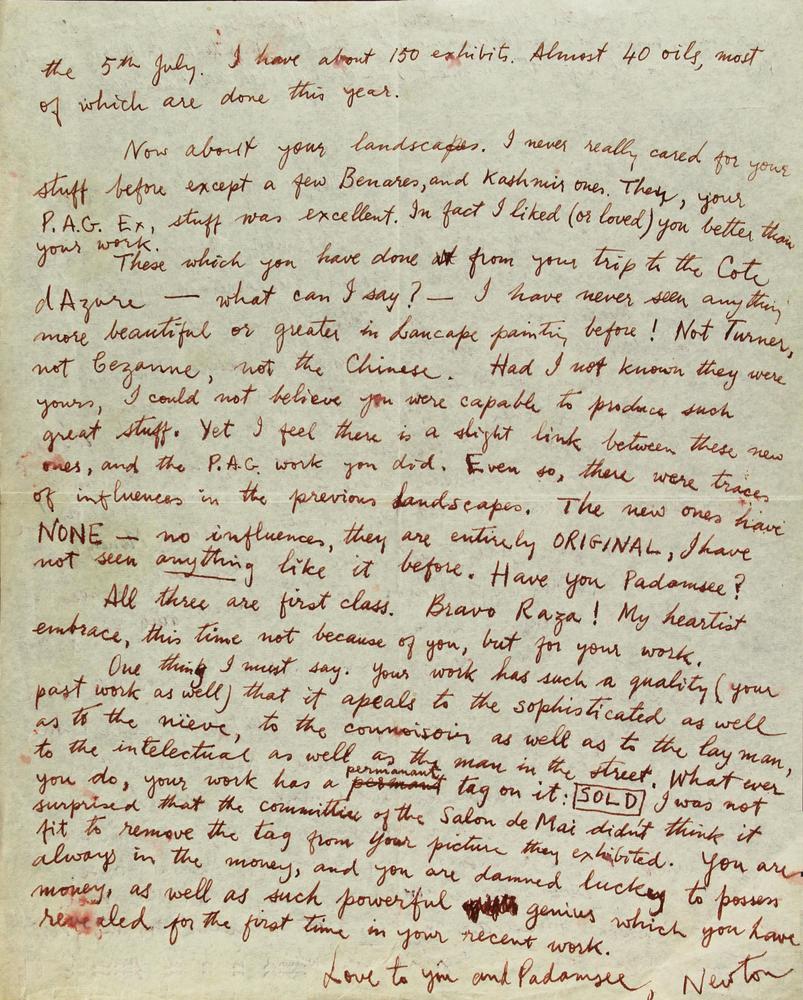 the 5th July. I have about 150 exhibits. Almost 40 oils, most
of which are done this year.
Now about your landscapes. I never really cared for your
stuff before except a few Benares, and Kashmir ones. They, your
P.A.G. Ex, stuff was excellent. In fact I liked (or loved) you better than
your work.
These which you have done from your trip to the Cote
dAzure — what can I say? — I have never seen anything
more beautiful or greater in Lancape painting before! Not Turner,
not Cezanne, not the Chinese. Had I not known they were
yours, I could not believe you were capable to produce such
great stuff. Yet I feel there is a slight link between these new
ones, and the P.A.G. work you did. Even so, there were traces
of influences in the previous landscapes. The new ones have
NONE — no influences, they are entirely ORIGINAL, I have
not seen anything like it before. Have you Padamsee?
All three are first class. Bravo Raza! My heartist
embrace, this time not because of you, but for your work.
One thing I must say. Your work has such a quality (your
past work as well) that it apeals to the sophisticated as well
as to the nieve, to the connoisoir as well as to the layman,
to the intelectual as well as the man in the street. What ever
you do, your work has a permanant tag on it: SOLD I was not
surprised that the committee of the Salon de Mai didn't think it
fit to remove the tag from your picture they exhibited. You are
always in the money, and you are damned luckey to possess
money, as well as such powerful genius which you have
revealed for the first time in your recent work.
Love to you and Padamsee, Newton